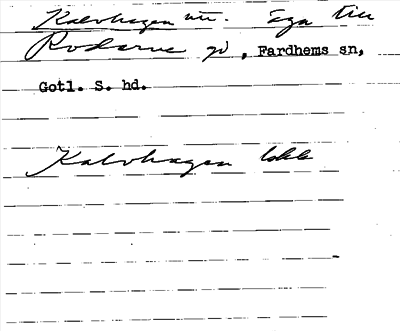 Kalvhagen Äga till
Rodarve gd, Fardhems sn,
Gotl. S. hd.
Kalvhagen